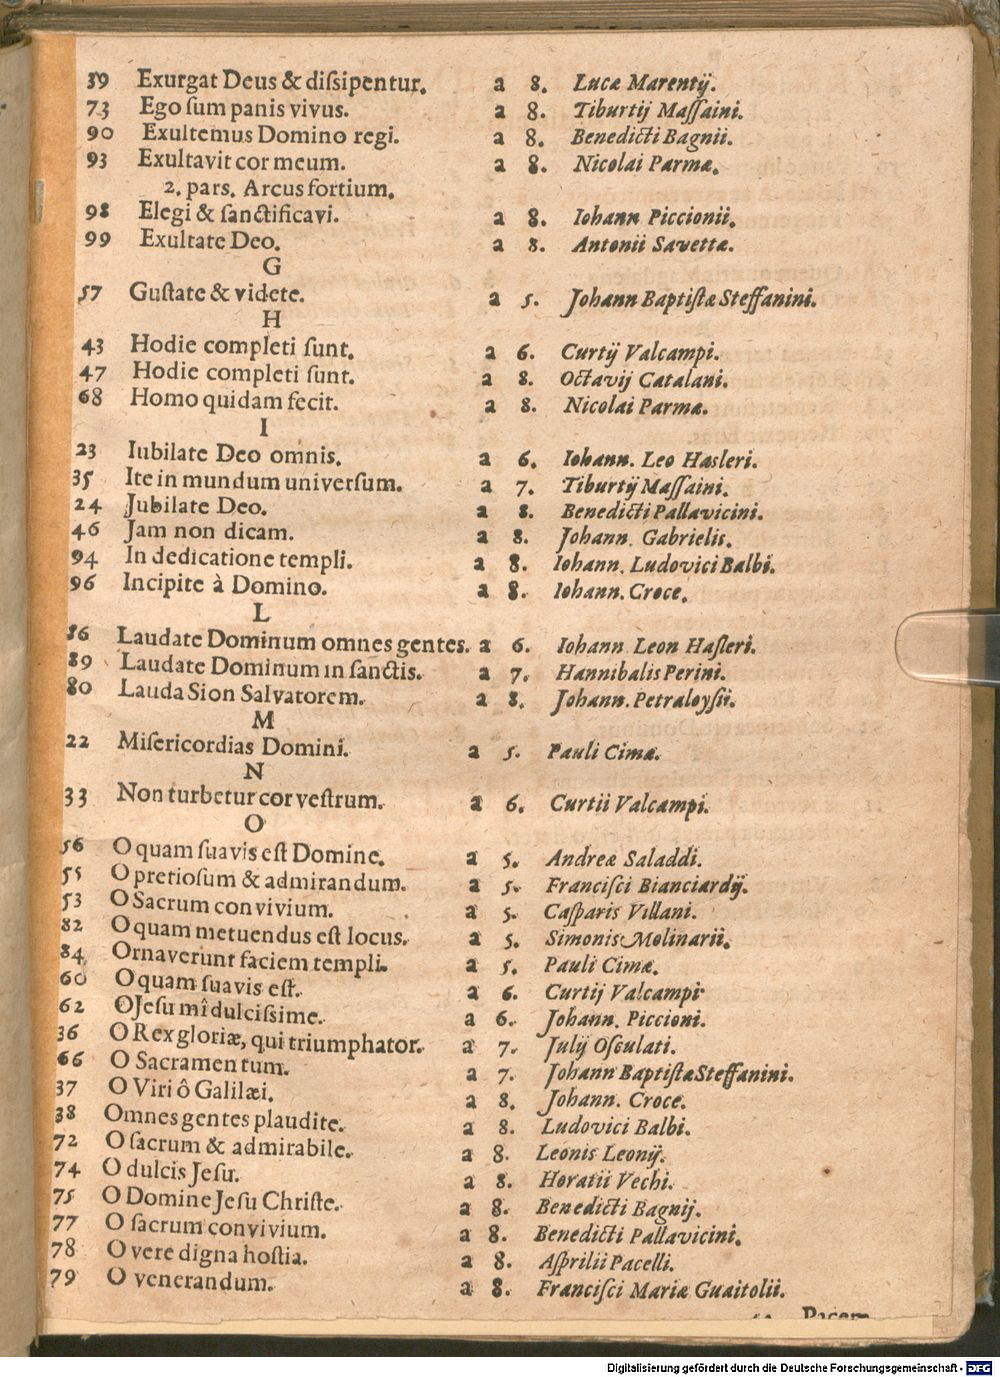 39 Exurgat Deus & dißipentur. a 8. Lucæ Marentij.
73 Ego ſum panis vivus. a 8. Tiburtij Maſſaini.
90 Exultemus Domino regi. a 8. Benedicti Bagnii.
93 Exultavit cor meum. a 8. Nicolai Parmæ.
2. pars. Arcus fortium.
98 Elegi & ſanctificavi. a 8. Iohann Piccionii.
99 Exultate Deo. a 8. Antonii Savettæ.
G
57 Guſtate & videte. a 5. Johann Baptiſtæ Steffanini.
H
43 Hodie completi ſunt. a 6. Curtij Valcampi.
47 Hodie completi ſunt. a 8. Octavij Catalani.
68 Homo quidam fecit. a 8. Nicolai Parmæ.
I
23 Iubilate Deo omnis. a 6. Iohann. Leo Hasleri.
35 Ite in mundum univerſum. a 7. Tiburtij Maſſaini.
24 Jubilate Deo. a 8. Benedicti Pallavicini.
46 Jam non dicam. a 8. Johann. Gabrielis.
94 In dedicatione templi. a 8. Iohann. Ludovici Balbi.
96 Incipite à Domino. a 8. Iohann. Croce.
L
86 Laudate Dominum omnes gentes. a 6. Iohann Leon Haſleri.
89 Laudate Dominum in ſanctis. a 7. Hannibalis Perini.
80 Lauda Sion Salvatorem. a 8. Johann. Petraloyſii.
M
22 Miſericordias Domini. a 5. Pauli Cimæ.
N
33 Non turbetur cor veſtrum. a 6. Curtii Valcampi.
O
56 O quam ſuavis eſt Domine. a 5. Andreæ Saladdi.
55 O pretioſum & admirandum. a 5. Franciſci Bianciardij.
53 O Sacrum convivium. a 5. Caſparis Villani.
82 O quam metuendus eſt locus. a 5. Simonis Molinarii.
84 Ornaverunt faciem templi. a 5. Pauli Cimæ.
60 O quam ſuavis eſt. a 6. Curtij Valcampi
62 O Jeſu mî dulciſsime. a 6. Johann. Piccioni.
36 O Rex gloriæ, qui triumphator. a 7. Julij Oſculati.
66 O Sacramentum. a 7. Johann Baptiſtæ Steffanini.
37 O Viri ô Galilæi. a 8. Johann. Croce.
38 Omnes gentes plaudite. a 8. Ludovici Balbi.
72 O ſacrum & admirabile. a 8. Leonis Leonij.
74 O dulcis Jeſu. a 8. Horatii Vechi.
75 O Domine Jeſu Chriſte. a 8. Benedicti Bagnij.
77 O ſacrum convivium. a 8. Benedicti Pallavicini.
78 O vere digna hoſtia. a 8. Aſprilii Pacelli.
79 O venerandum. a 8. Franciſci Mariæ Guaitolii.
Pacem
Digitalisierung gefördert durch die Deutsche Forschungsgemeinschaft - DFG